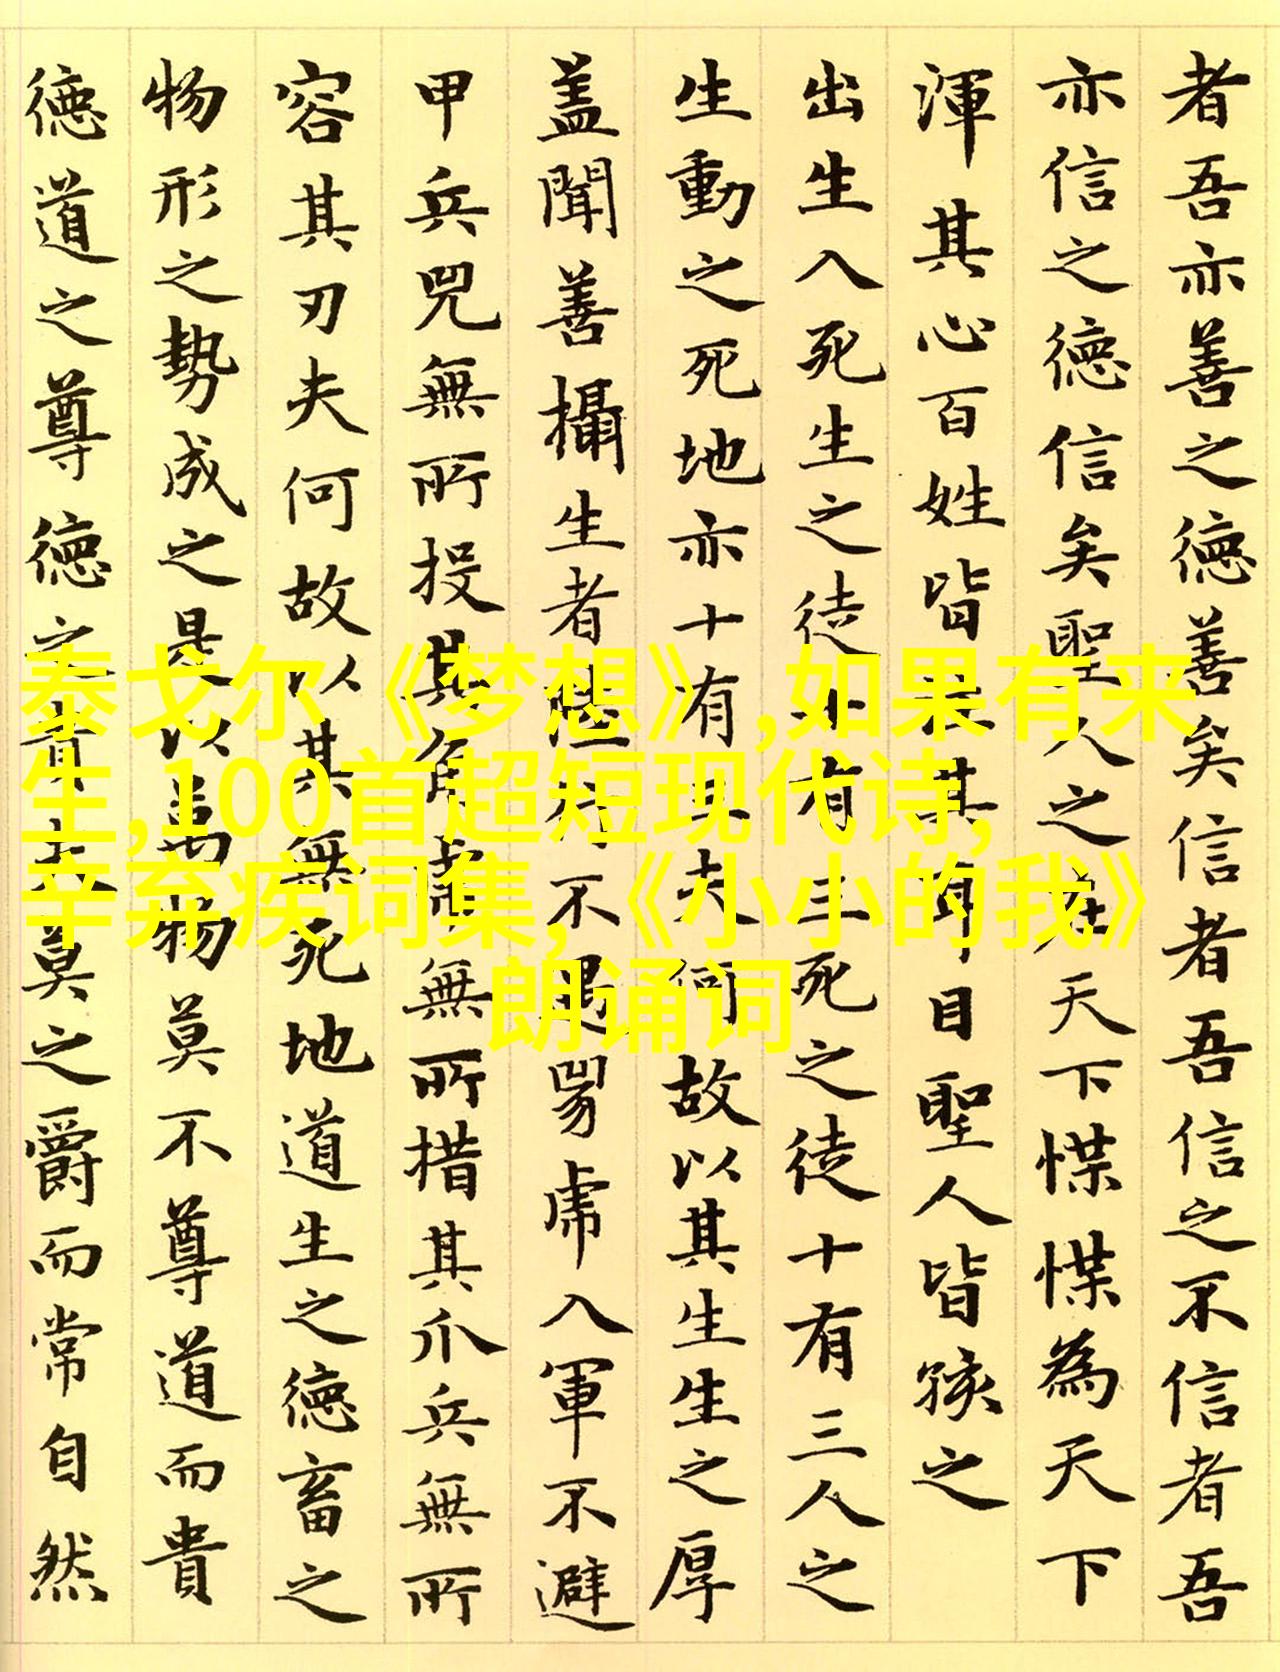 者吾亦善之德善矣信者吾信之不信者吾
亦信之德信矣聖人之在天下惵惵為天下
渾其心百姓皆其耳目聖人皆孩之
出生入死生之徒十有三死之徒十有三人之
生動之死地亦十有三夫何故以其生生之厚
蓋聞善攝生者陸行不遇兕虎入軍不避
甲兵兕無所投其角虎無所措其爪兵無所
容其刃夫何故以其無死地道生之德畜之
物形之勢成之是以萬物莫不尊道而貴
德道之尊德之貴夫莫之爵而常自然
泰戈尔《梦想》,如果有来
生,100首超短现代诗,
辛弃疾词集,《小小的我》
朗诵词